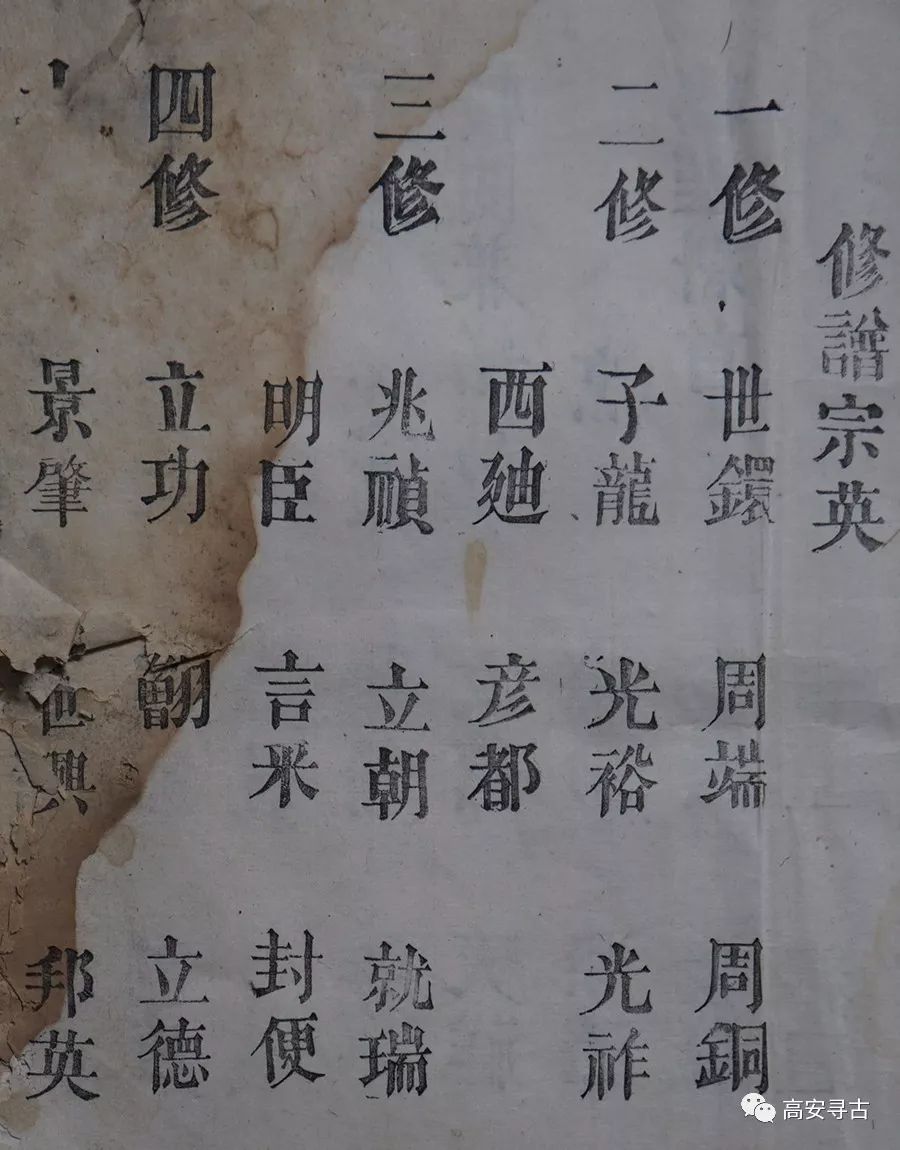 修譜宗英
一修 世鐶 周端 周銅
二修 子龍 光裕 光祚
西廸 彦都
三修 兆禎 立朝 就瑞
明臣 言米 封便
四修 立功 立德
景肇 興 邦英
高安寻古